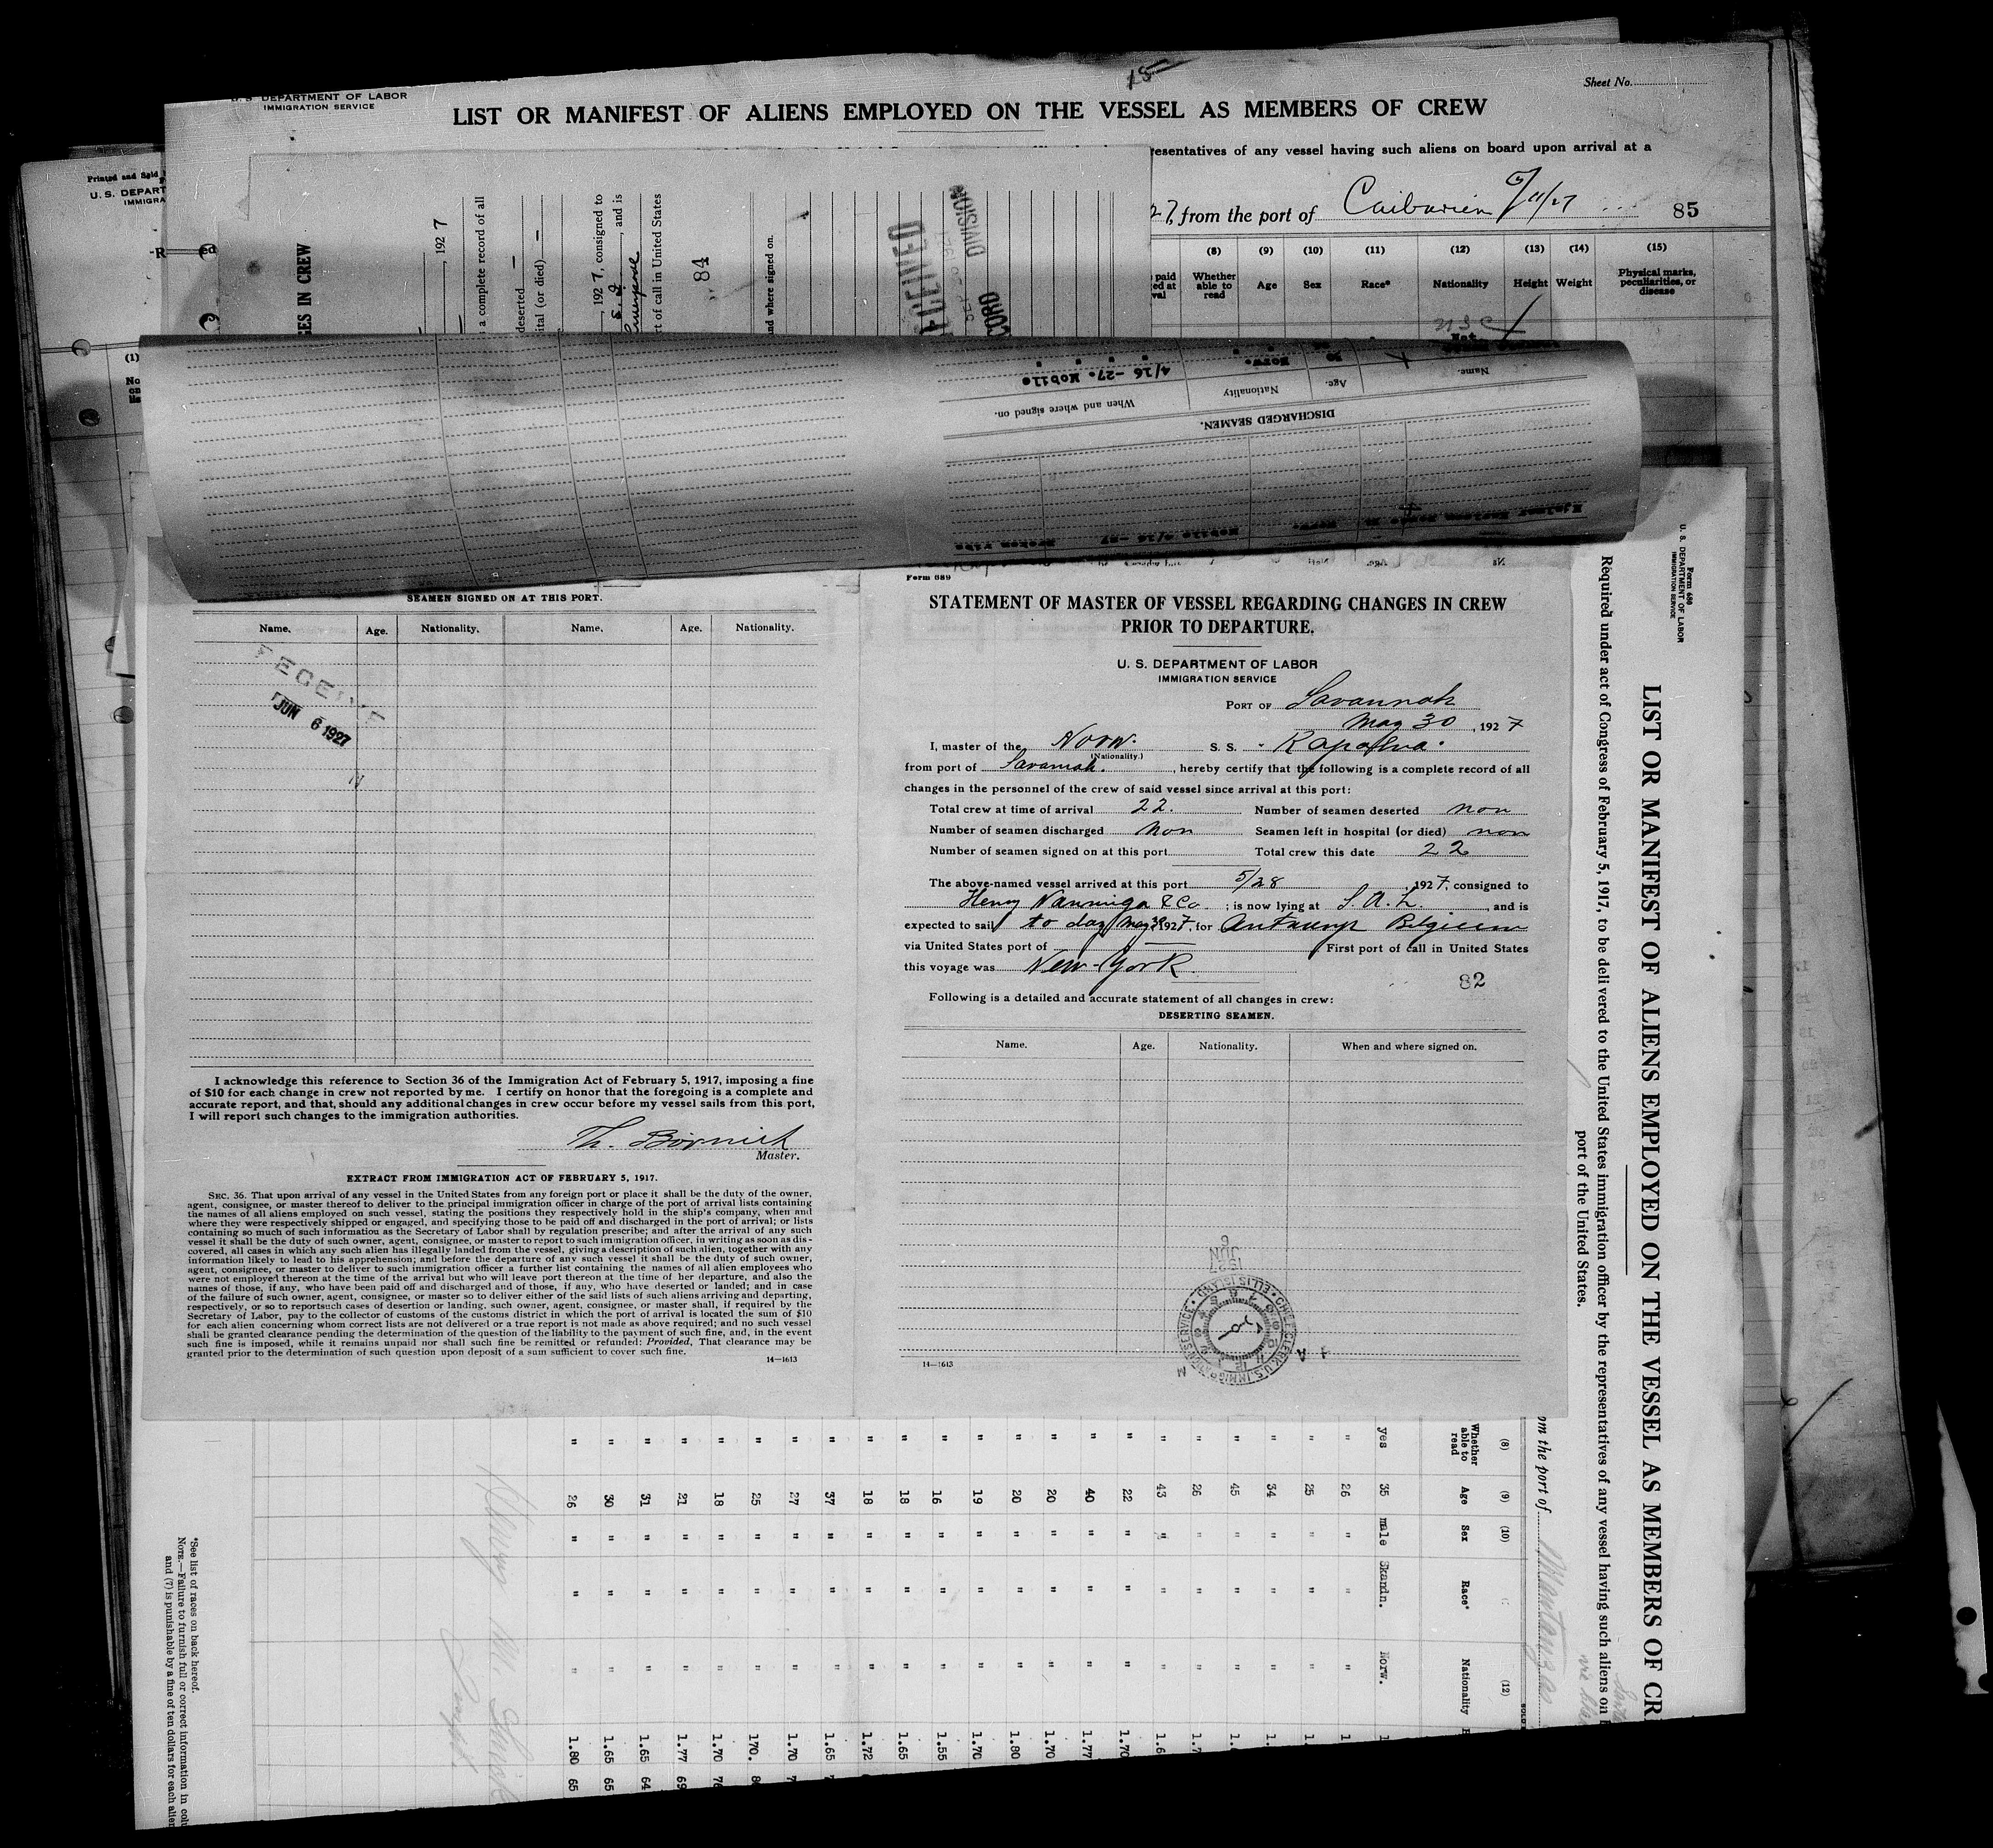 U. S. DEPARTMENT OF LABOR
IMMIGRATION SERVICE
15
Sheet No.
LIST OR MANIFEST OF ALIENS EMPLOYED ON THE VESSEL AS MEMBERS OF CREW
resentatives of any vessel having such aliens on board upon arrival at a
27, from the port of Caibarien 5/11/27
85
(8) (9) (10) (11) (12) (13) (14) (15)
paid Whether able to read Age Sex Race* Nationality Height Weight Physical marks, peculiarities, or disease
Printed and Sold
U. S. DEPART
IMMIGRA
(1)
No
GES IN CREW
, 1927
a complete record of all
deserted —
ital (or died) —
, 1927, consigned to
, and is
rt of call in United States
84
and where signed on.
DIVISION
DISCHARGED SEAMEN.
Name. Age. Nationality When and where signed on.
Norw. 4/16 -27. Mobile
SEAMEN SIGNED ON AT THIS PORT.
Name. Age. Nationality. Name. Age. Nationality.
JUN 6 1927
I acknowledge this reference to Section 36 of the Immigration Act of February 5, 1917, imposing a fine
of $10 for each change in crew not reported by me. I certify on honor that the foregoing is a complete and
accurate report, and that, should any additional changes in crew occur before my vessel sails from this port,
I will report such changes to the immigration authorities.
Master.
EXTRACT FROM IMMIGRATION ACT OF FEBRUARY 5, 1917.
SEC. 36. That upon arrival of any vessel in the United States from any foreign port or place it shall be the duty of the owner,
agent, consignee, or master thereof to deliver to the principal immigration officer in charge of the port of arrival lists containing
the names of all aliens employed on such vessel, stating the positions they respectively hold in the ship's company, when and
where they were respectively shipped or engaged, and specifying those to be paid off and discharged in the port of arrival; or lists
containing so much of such information as the Secretary of Labor shall by regulation prescribe; and after the arrival of any such
vessel it shall be the duty of such owner, agent, consignee, or master to report to such immigration officer, in writing as soon as dis-
covered, all cases in which any such alien has illegally landed from the vessel, giving a description of such alien, together with any
information likely to lead to his apprehension; and before the departure of any such vessel it shall be the duty of such owner,
agent, consignee, or master to deliver to such immigration officer a further list containing the names of all alien employees who
were not employed thereon at the time of the arrival but who will leave port thereon at the time of her departure, and also the
names of those, if any, who have been paid off and discharged and of those, if any, who have deserted or landed; and in case
of the failure of such owner, agent, consignee, or master so to deliver either of the said lists of such aliens arriving and departing,
respectively, or so to reportsuch cases of desertion or landing, such owner, agent, consignee, or master shall, if required by the
Secretary of Labor, pay to the collector of customs of the customs district in which the port of arrival is located the sum of $10
for each alien concerning whom correct lists are not delivered or a true report is not made as above required; and no such vessel
shall be granted clearance pending the determination of the question of the liability to the payment of such fine, and, in the event
such fine is imposed, while it remains unpaid nor shall such fine be remitted or refunded: Provided, That clearance may be
granted prior to the determination of such question upon deposit of a sum sufficient to cover such fine.
14—1613
Form 689
STATEMENT OF MASTER OF VESSEL REGARDING CHANGES IN CREW
PRIOR TO DEPARTURE.
U. S. DEPARTMENT OF LABOR
IMMIGRATION SERVICE
PORT OF Savannah
May 30, 1927
I, master of the Norw. S. S.
(Nationality.)
from port of Savannah., hereby certify that the following is a complete record of all
changes in the personnel of the crew of said vessel since arrival at this port:
Total crew at time of arrival 22. Number of seamen deserted non
Number of seamen discharged non Seamen left in hospital (or died) non
Number of seamen signed on at this port Total crew this date 22
The above-named vessel arrived at this port 5/28, 1927, consigned to
Henry Nanninga & Co.; is now lying at S. A. L., and is
expected to sail to day May 30 1927, for Antwerp Belgium
via United States port of — First port of call in United States
this voyage was New-York.
82
Following is a detailed and accurate statement of all changes in crew:
DESERTING SEAMEN.
Name. Age. Nationality. When and where signed on.
JUN 6 1927
CHIEF CLERK U.S. IMMIGRATION SERVICE ELLIS ISLAND
14—1613
Form 680
U. S. DEPARTMENT OF LABOR
IMMIGRATION SERVICE
LIST OR MANIFEST OF ALIENS EMPLOYED ON THE VESSEL AS MEMBERS OF CR
Required under act of Congress of February 5, 1917, to be delivered to the United States immigration officer by the representatives of any vessel having such aliens on
port of the United States.
om the port of
(8) (9) (10) (12)
Whether able to read Age Sex Race* Nationality
yes 35 male Skandin. Norw.
" 26 " " "
" 25 " " "
" 34 " " "
" 45 " " "
" 26 " " "
" 43 " " "
" 22 " " " 1.70
" 40 " " " 1.77
" 20 " " " 1.70
" 20 " " " 1.80
" 19 " " " 1.70
" 16 " " " 1.55
" 18 " " " 1.65
" 18 " " " 1.72
" 37 " " " 1.65
" 27 " " " 1.70
" 25 " " " 170.
" 18 " " " 1.70
" 21 " " " 1.77 69
" 31 " " " 1.65 64
" 30 " " " 1.65 65
" 26 " " " 1.80 65
*See list of races on back hereof.
NOTE.—Failure to furnish full or correct information in colu
and (7) is punishable by a fine of ten dollars for each alien